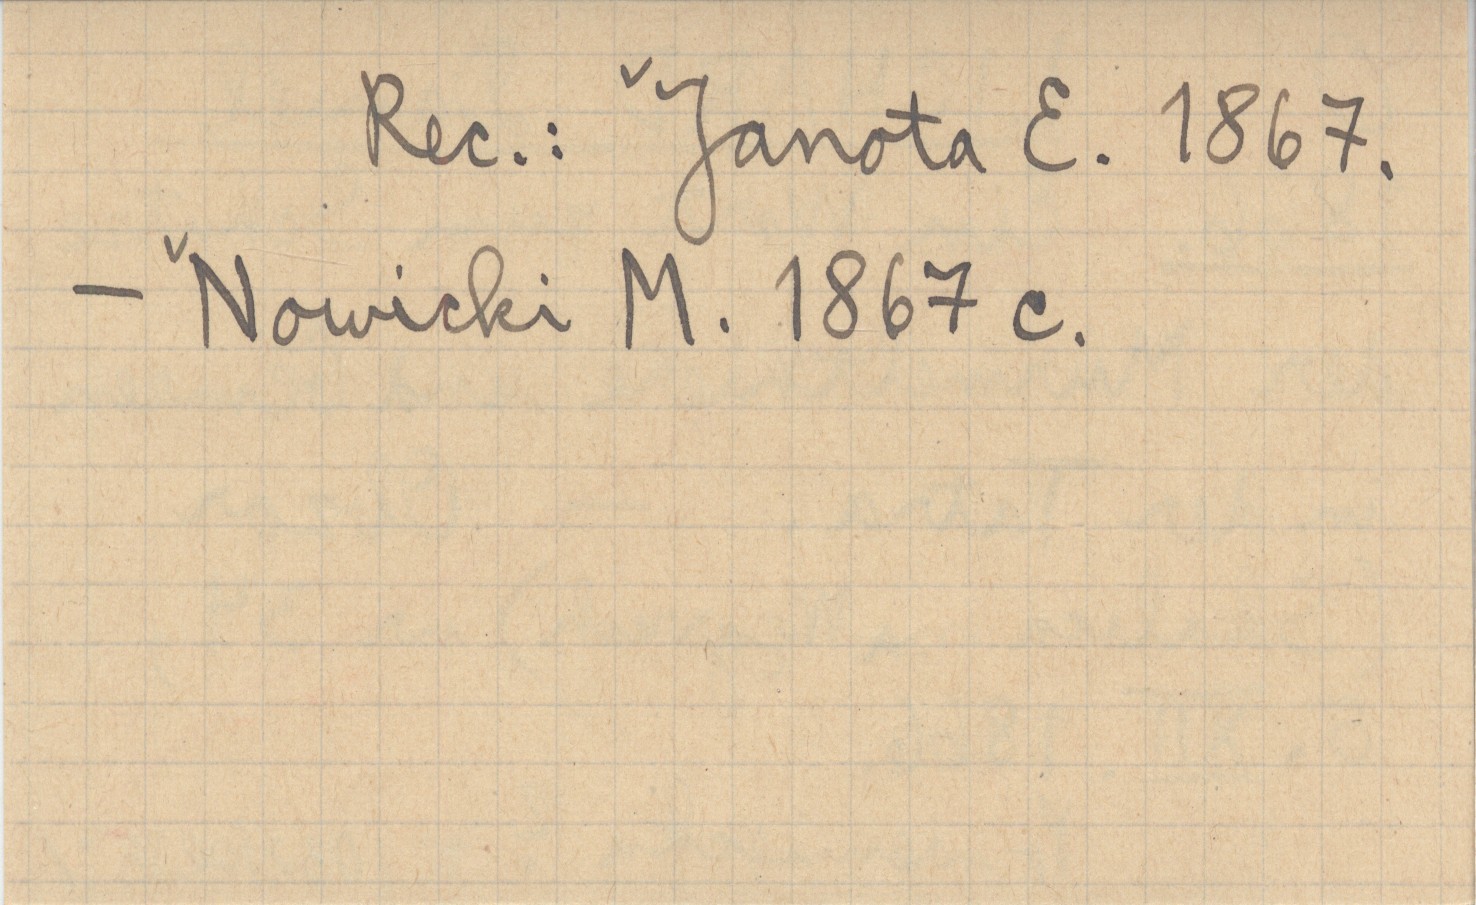 Rec.: ˇJanota E. 1867.
– ˇNowicki M. 1867 c.